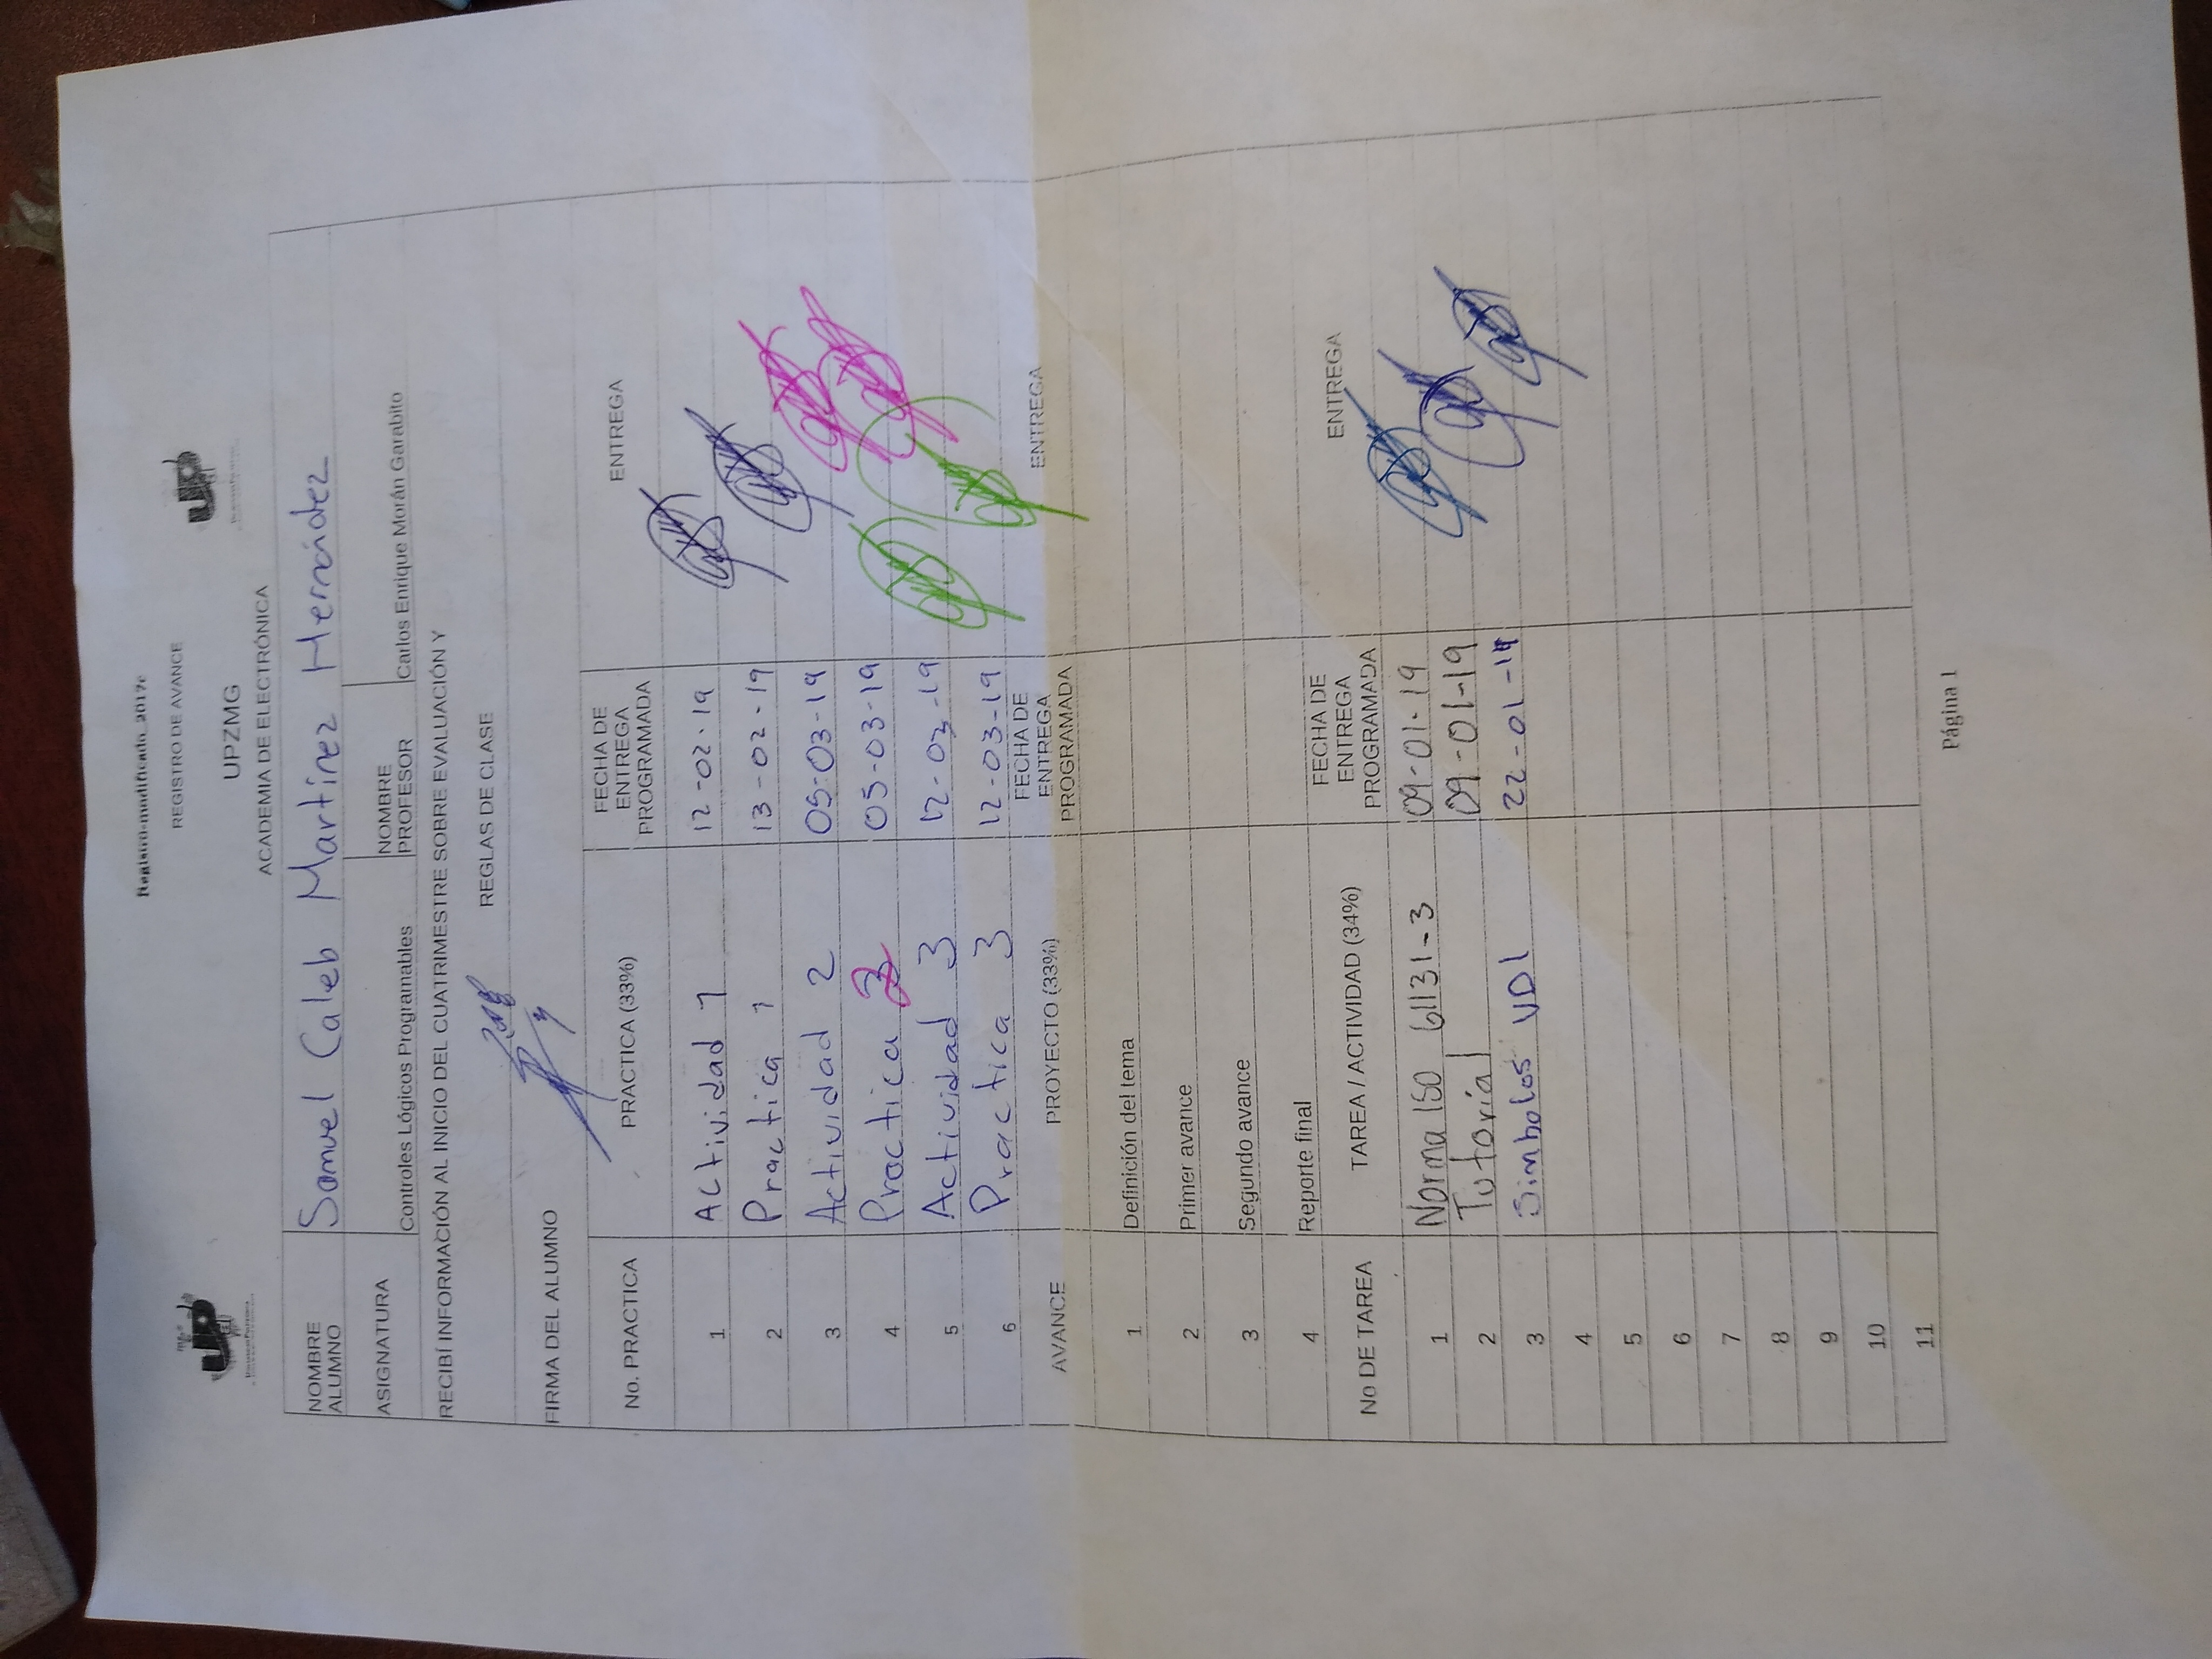 Registro-modificado_2017c
REGISTRO DE AVANCE
UPZMG
ACADEMIA DE ELECTRÓNICA
NOMBRE ALUMNO Samuel Caleb Martinez Hernández
ASIGNATURA Controles Lógicos Programables NOMBRE PROFESOR Carlos Enrique Morán Garabito
RECIBÍ INFORMACIÓN AL INICIO DEL CUATRIMESTRE SOBRE EVALUACIÓN Y
REGLAS DE CLASE
FIRMA DEL ALUMNO
No. PRACTICA PRACTICA (33%) FECHA DE ENTREGA PROGRAMADA ENTREGA
1 Actividad 1 12-02-19
2 Practica 1 13-02-19
3 Actividad 2 05-03-19
4 Practica 2 05-03-19
5 Actividad 3 12-03-19
6 Practica 3 12-03-19
AVANCE PROYECTO (33%) FECHA DE ENTREGA PROGRAMADA ENTREGA
1 Definición del tema
2 Primer avance
3 Segundo avance
4 Reporte final
No DE TAREA TAREA / ACTIVIDAD (34%) FECHA DE ENTREGA PROGRAMADA ENTREGA
1 Norma ISO 61131-3 09-01-19
2 Tutorial 09-01-19
3 Simbolos VDI 22-01-19
4
5
6
7
8
9
10
11
Página 1